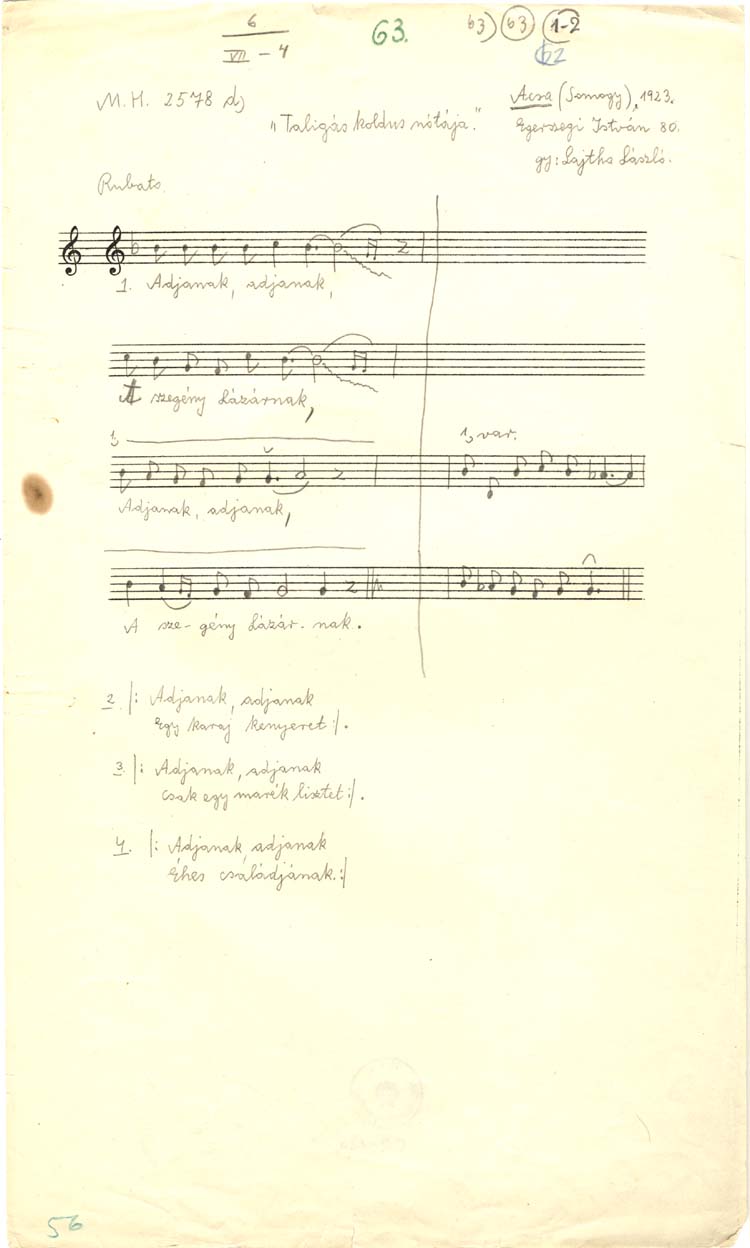 6
VII - 4
63.
63) 63 1-2
62
M. H. 2578 d)
"Taligás koldus nótája."
Acsa (Somogy), 1923.
Egerszegi István 80.
gy: Lajtha László.
Rubato
1. Adjanak, adjanak,
A szegény Lázárnak,
1, 1, var.
Adjanak, adjanak,
A sze- gény Lázár- nak.
2. |: Adjanak, adjanak
Egy karaj kenyeret :|.
3. |: Adjanak, adjanak
csak egy marék lisztet :|.
4. |: Adjanak, adjanak
Éhes családjának. :|
56